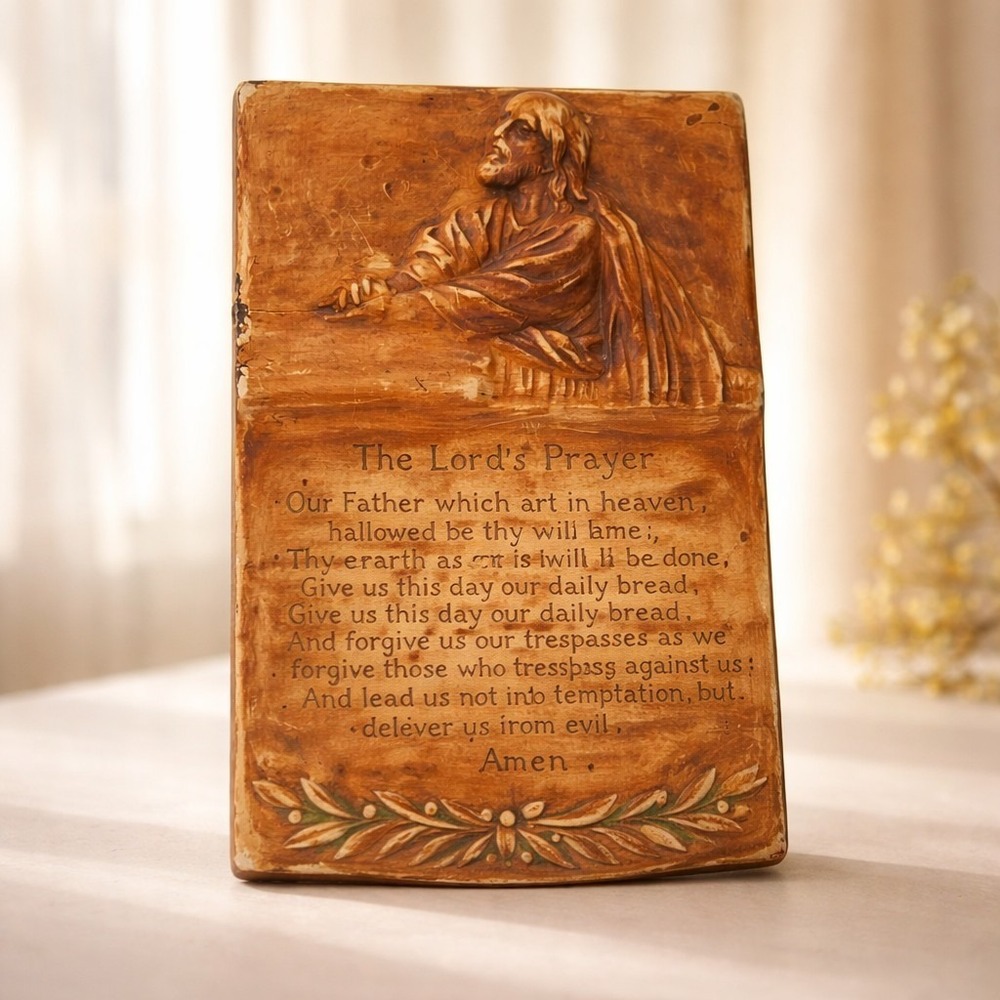 The Lord's Prayer
Our Father which art in heaven,
hallowed be thy will lame;,
Thy erarth as is lwill be done,
Give us this day our daily bread,
Give us this day our daily bread,
And forgive us our trespasses as we
forgive those who tresspasg against us:
And lead us not into temptation, but.
delever us irom evil.
Amen.